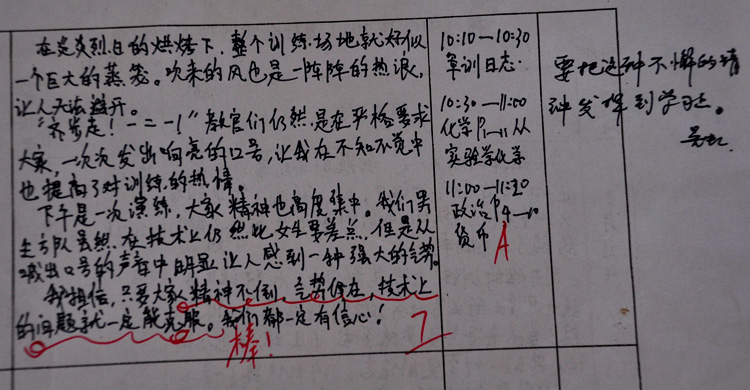 在炎炎烈日的烘烤下,整个训练场地就好似
一个巨大的蒸笼。吹来的风也是一阵阵的热浪,
让人无法避开。
"齐步走!一二一!"教官们仍然是在严格要求
大家,一次次发出响亮的口号,让我在不知不觉中
也提高了对训练的热情。
下午是一次演练,大家精神也高度集中。我们男
生方队虽然在技术上仍然比女生要差点,但是从
喊出口号的声音中明显让人感到一种强大的气势。
我相信,只要大家精神不倒,气势仍在,技术上
的问题就一定能克服。我们都一定有信心!
棒!
10:10—10:30
军训日志.
10:30—11:00
化学P1-11 从
实验学化学
11:00—11:20
政治P4—10
货币
A
要把这种不懈的精
神发挥到学习上。